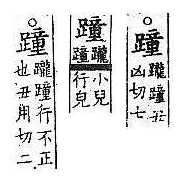 ○蹱
躘蹱丑
凶切七
蹱
躘蹱
小兒
行皃
○蹱
躘蹱行不正
也丑用切二